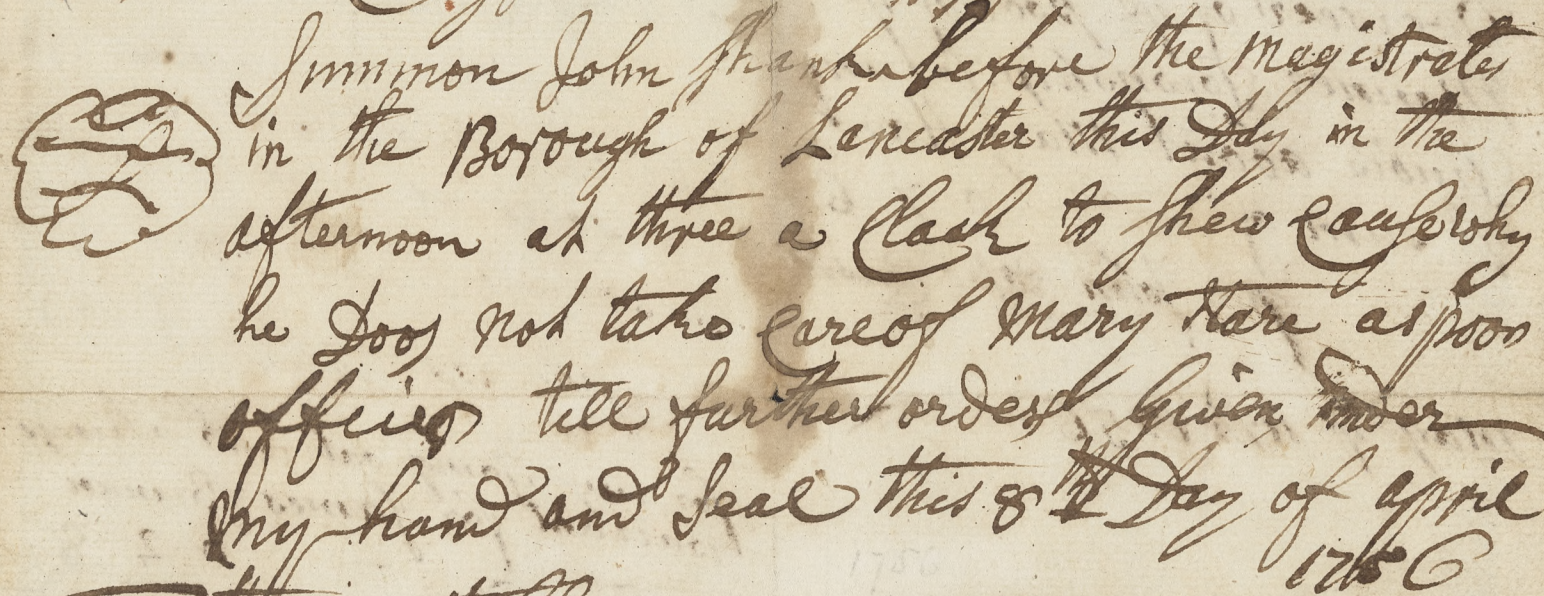 Summon John Shank before the Magistrates
in the Borough of Lancaster this Day in the
afternoon at three a Clock to shew Cause why
he Doos not take Care of Mary Hare as poor
officer till further orders Given under
my hand and Seal this 8th Day of april
1756